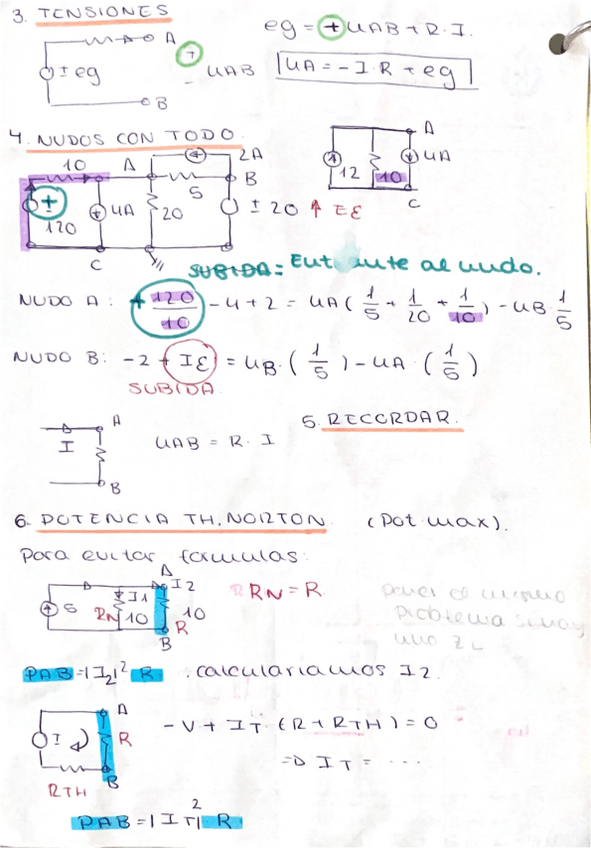 3. TENSIONES
A
eg = + UAB + R·I.
+
± eg
- UAB
UA = -I·R + eg
B
4. NUDOS CON TODO.
10
A
2A
B
5
±
120
4A
20
± 20 ↑ Eε
C
A
12
10
4A
C
SUBIDA = Entrante al nudo.
NUDO A: + 120/10 - 4 + 2 = UA (1/5 + 1/20 + 1/10) - UB · 1/5
NUDO B: -2 + Iε = UB · (1/5) - UA · (1/5)
SUBIDA.
A
I
UAB = R·I
B
5. RECORDAR.
6. POTENCIA TH, NORTON (Pot. max).
Para evitar formulas:
A
I2
5
I1
RN 10
10
R
B
RN = R
problema
PAB = |I2|² R . calculariamos I2.
A
I
R
B
RTH
-V + IT · (R + RTH) = 0
=> IT = ...
PAB = |IT|² · R